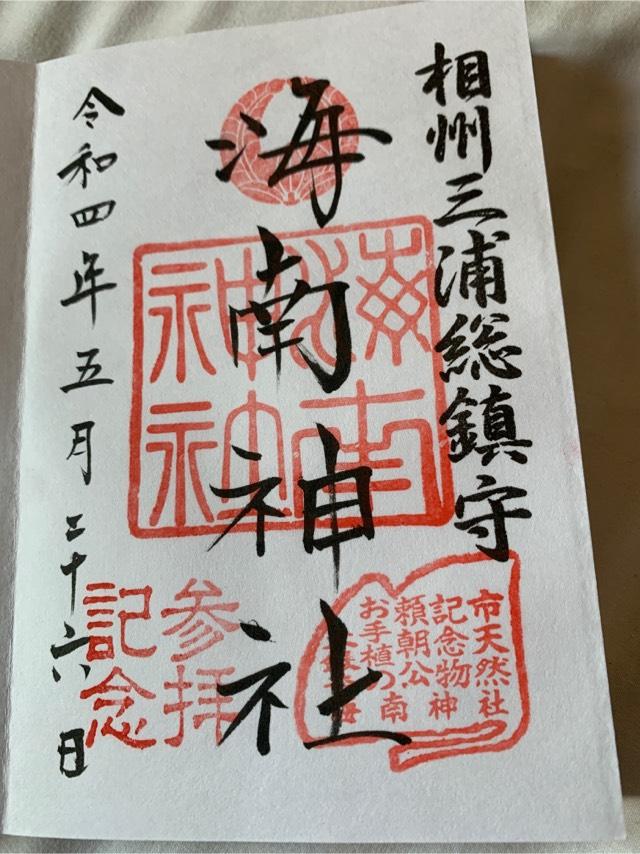 相州三浦総鎮守
海南神社
令和四年五月二十六日
海南
神社
参拝
記念
市天然
記念物
頼朝公
お手植の
社
神
南
海